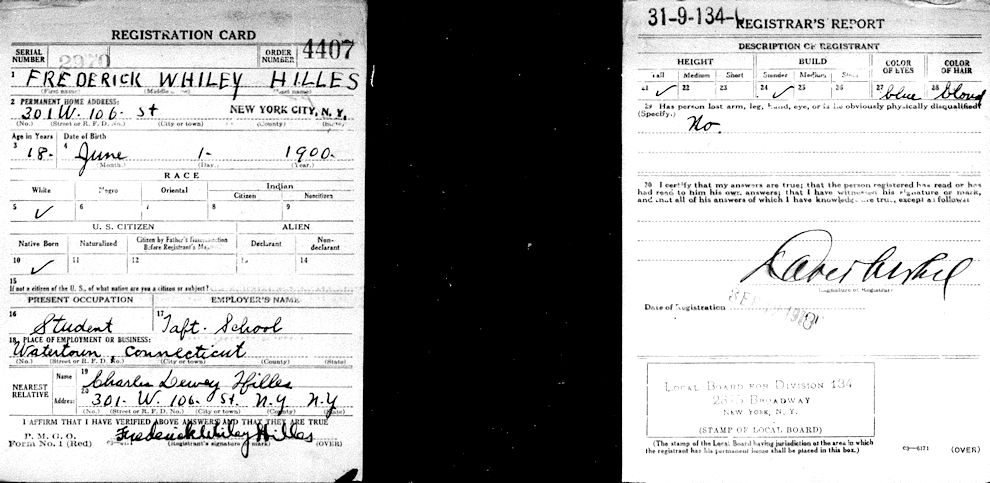 REGISTRATION CARD
SERIAL NUMBER 2970 ORDER NUMBER 4407
1 FREDERICK WHILEY HILLES
(First name) (Middle name) (Last name)
2 PERMANENT HOME ADDRESS:
301 W. 106- St NEW YORK CITY, N. Y.
(No.) (Street or R. F. D. No.) (City or town) (County) (State)
Age in Years Date of Birth
3 18- 4 June 1- 1900-
(Month.) (Day.) (Year.)
RACE
White Negro Oriental Indian
Citizen Noncitizen
5 ✓ 6 7 8 9
U. S. CITIZEN ALIEN
Native Born Naturalized Citizen by Father's Naturalization Before Registrant's Majority Declarant Non-declarant
10 ✓ 11 12 13 14
15
If not a citizen of the U. S., of what nation are you a citizen or subject?
PRESENT OCCUPATION EMPLOYER'S NAME
16 Student 17 Taft- School
18 PLACE OF EMPLOYMENT OR BUSINESS:
Watertown, Connecticut
(No.) (Street or R. F. D. No.) (City or town) (County) (State)
NEAREST RELATIVE
Name 19 Charles Dewey Hilles
Address 20 301- W. 106- St. N.Y N.Y
(No.) (Street or R. F. D. No.) (City or town) (County) (State)
I AFFIRM THAT I HAVE VERIFIED ABOVE ANSWERS AND THAT THEY ARE TRUE
P. M. G. O.
Form No. 1 (Red) Frederick Whiley Hilles
(Registrant's signature or mark) (OVER)
31-9-134-
REGISTRAR'S REPORT
DESCRIPTION OF REGISTRANT
HEIGHT BUILD COLOR OF EYES COLOR OF HAIR
Tall Medium Short Slender Medium Stout
21 ✓ 22 23 24 ✓ 25 26 27 blue 28 blond
29 Has person lost arm, leg, hand, eye, or is he obviously physically disqualified?
(Specify.) No.
30 I certify that my answers are true; that the person registered has read or has
had read to him his own answers; that I have witnessed his signature or mark,
and that all of his answers of which I have knowledge are true, except as follows:
(Signature of Registrar)
Date of Registration
LOCAL BOARD FOR DIVISION 134
2875 BROADWAY
NEW YORK, N. Y.
(STAMP OF LOCAL BOARD)
(The stamp of the Local Board having jurisdiction of the area in which
the registrant has his permanent home shall be placed in this box.)
03-6171 (OVER)